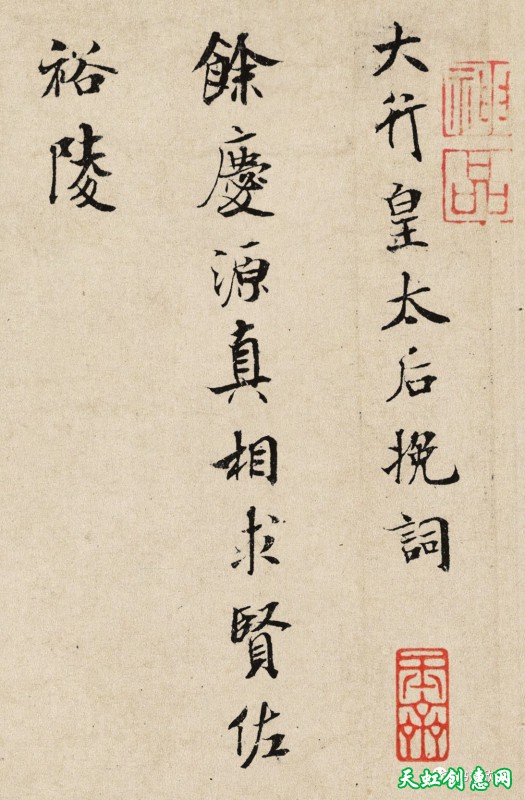 大行皇太后挽詞
餘慶源真相求賢佐
裕陵
神品
天虹创惠网